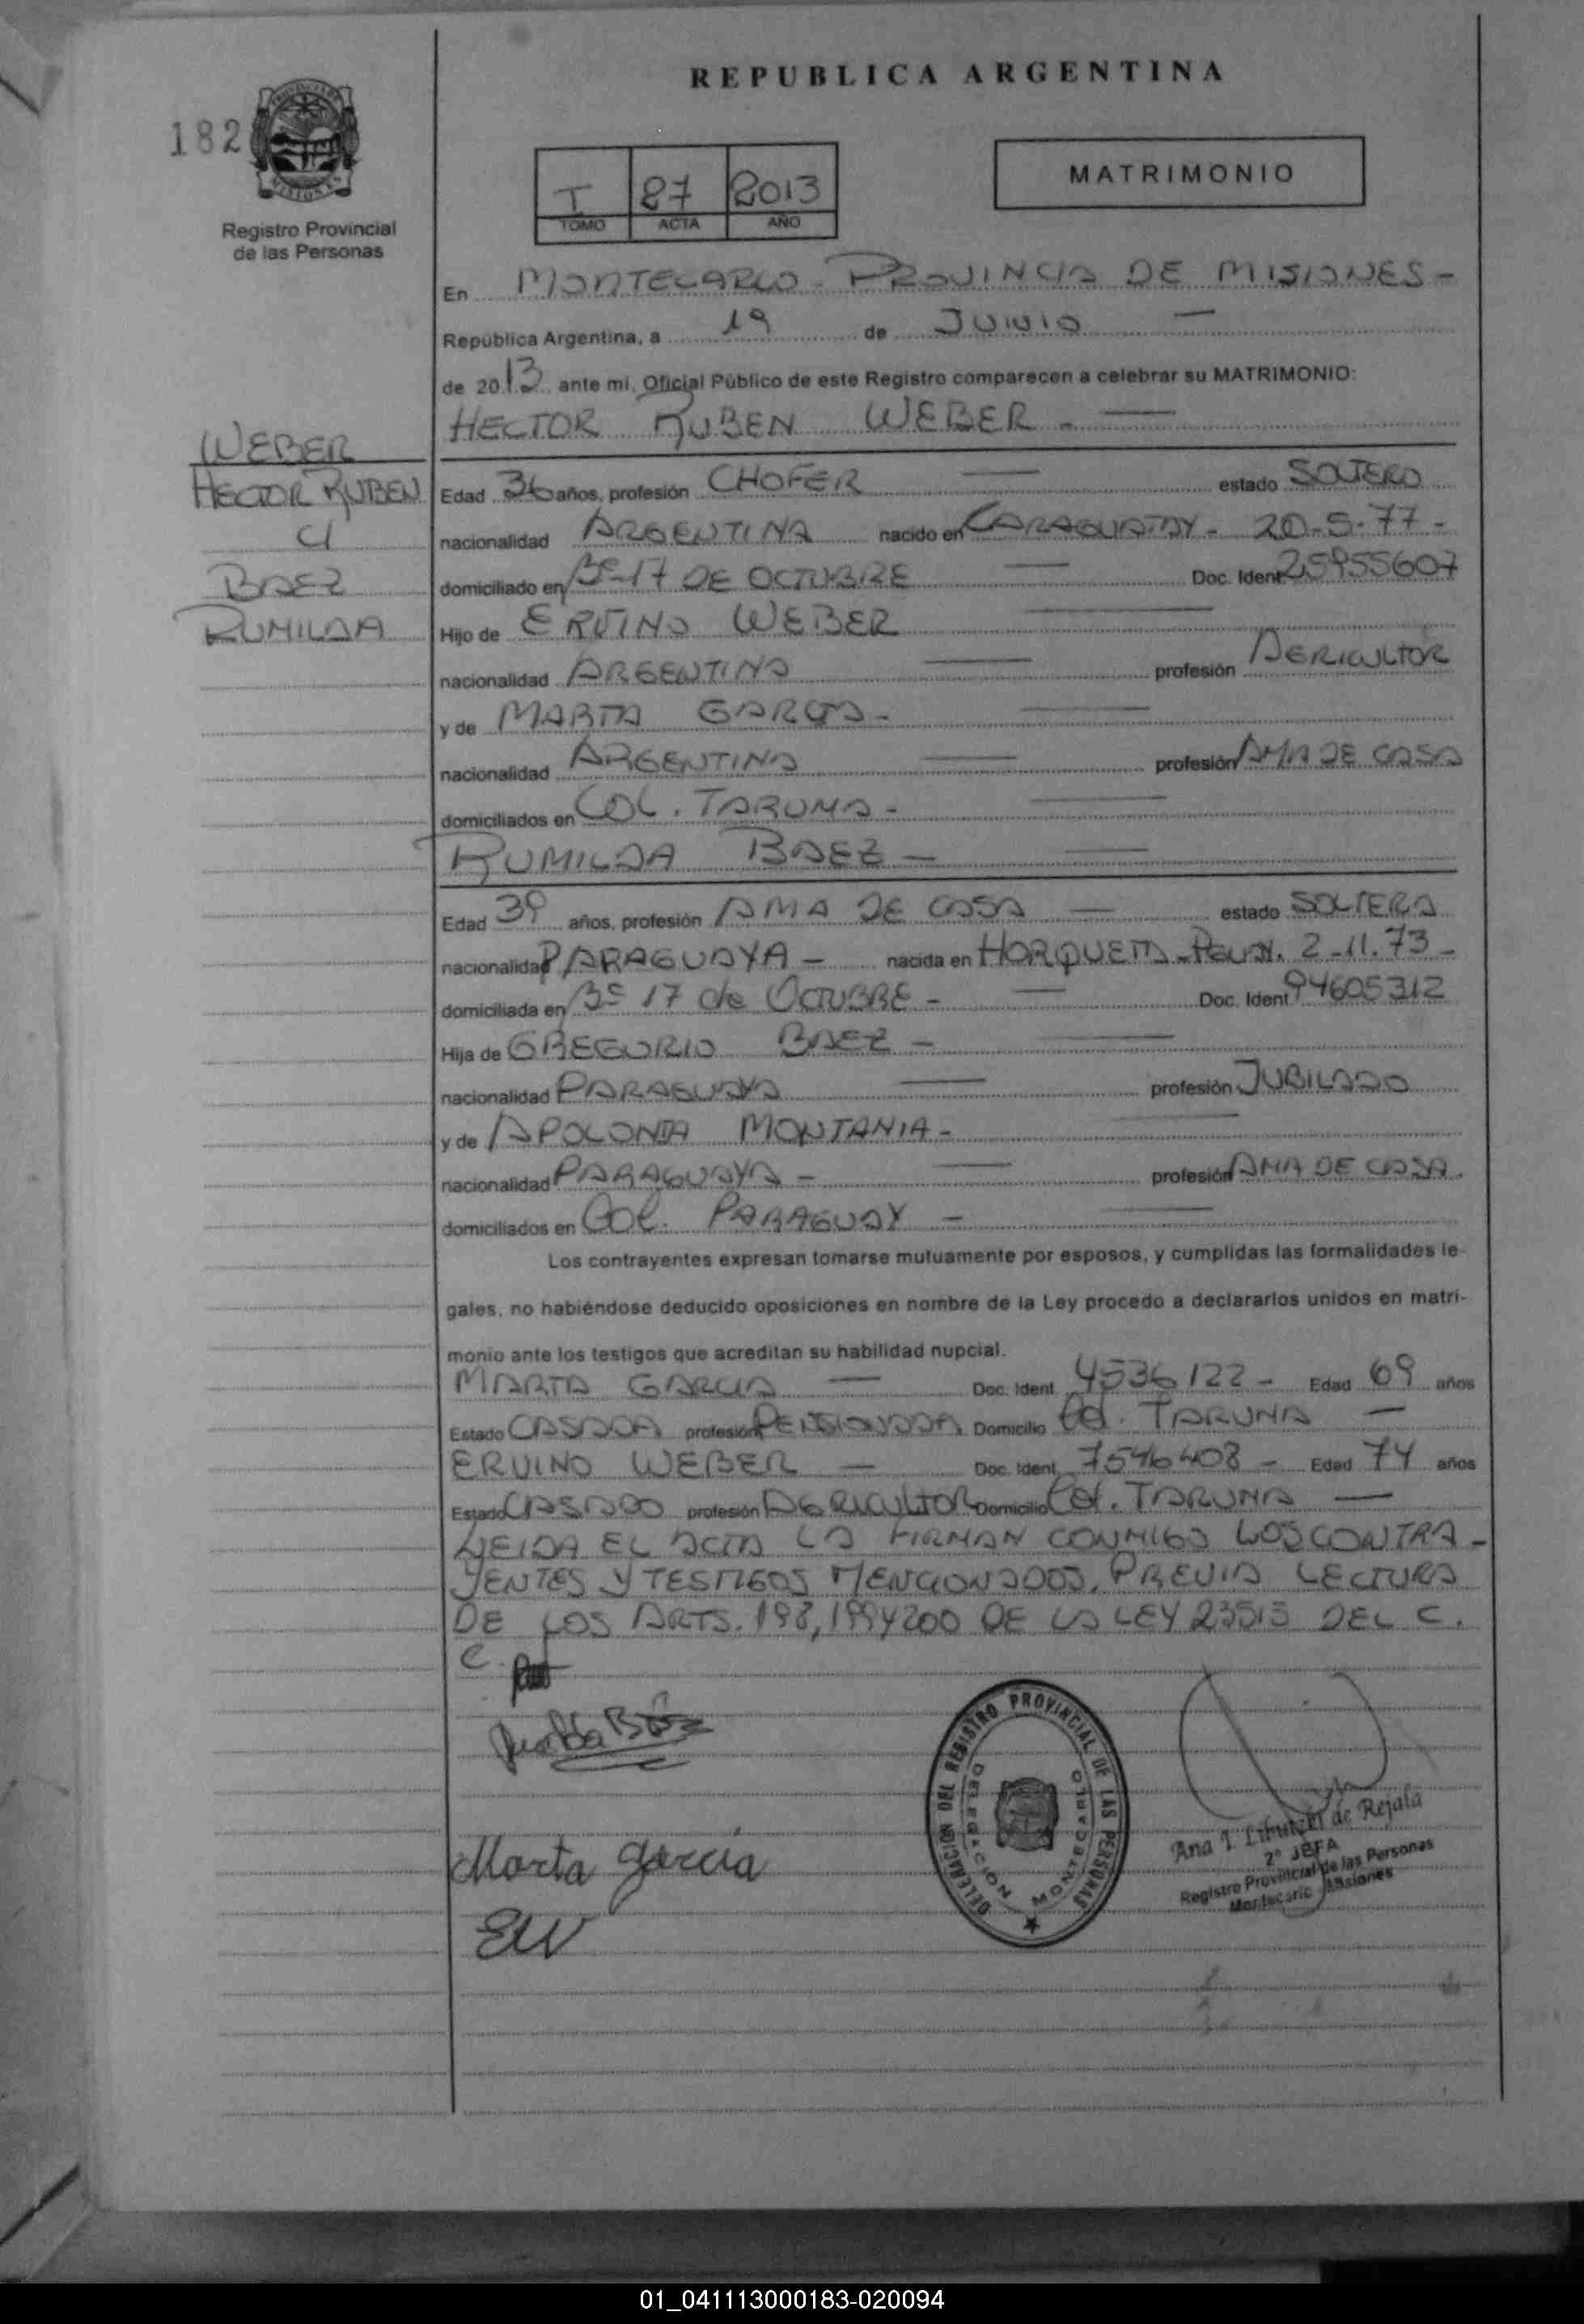 REPUBLICA ARGENTINA
182
PROVINCIA DE MISIONES
Registro Provincial
de las Personas
I 87 2013
TOMO ACTA AÑO
MATRIMONIO
En MONTECARLO - PROVINCIA DE MISIONES -
República Argentina, a 19 de JUNIO —
de 2013 ante mi, Oficial Público de este Registro comparecen a celebrar su MATRIMONIO:
HECTOR RUBEN WEBER - —
WEBER
HECTOR RUBEN
C/
BAEZ
RUMILDA
Edad 36 años, profesión CHOFER — estado SOLTERO
nacionalidad ARGENTINA nacido en CARAGUATAY - 20-5-77 -
domiciliado en Bº 17 DE OCTUBRE — Doc. Ident 25955607
Hijo de ERVINO WEBER —
nacionalidad ARGENTINA — profesión AGRICULTOR
y de MARTA GARCIA - —
nacionalidad ARGENTINA — profesión AMA DE CASA
domiciliados en COL. TARUMA - —
RUMILDA BAEZ — —
Edad 39 años, profesión AMA DE CASA — estado SOLTERA
nacionalidad PARAGUAYA — nacida en HORQUETA - 2-11.73 -
domiciliada en Bº 17 de OCTUBRE - — Doc. Ident 94605312
Hija de GREGORIO BAEZ - —
nacionalidad PARAGUAYA — profesión JUBILADO
y de APOLONIA MONTANIA - —
nacionalidad PARAGUAYA - — profesión AMA DE CASA.
domiciliados en Col. PARAGUAY - —
Los contrayentes expresan tomarse mutuamente por esposos, y cumplidas las formalidades le-
gales, no habiéndose deducido oposiciones en nombre de la Ley procedo a declararlos unidos en matri-
monio ante los testigos que acreditan su habilidad nupcial.
MARTA GARCIA — Doc. Ident. 4536122 - Edad 69 años
Estado CASADA profesión PENSIONADA Domicilio Col. TARUMA —
ERVINO WEBER — Doc. Ident. 7546408 - Edad 74 años
Estado CASADO profesión AGRICULTOR Domicilio Col. TARUMA —
LEIDA EL ACTA LA FIRMAN CONMIGO LOS CONTRA-
YENTES Y TESTIGOS MENCIONADOS, PREVIA LECTURA
DE LOS ARTS. 198, 199 Y 200 DE LA LEY 23515 DEL C.
C.
Rumilda Báez
Marta garcia
EW
DELEGACION DEL REGISTRO PROVINCIAL DE LAS PERSONAS
DELEGACION MONTECARLO
Ana I. de Rejala
2º JEFA
Registro Provincial de las Personas
Montecarlo - Misiones
01_041113000183-020094